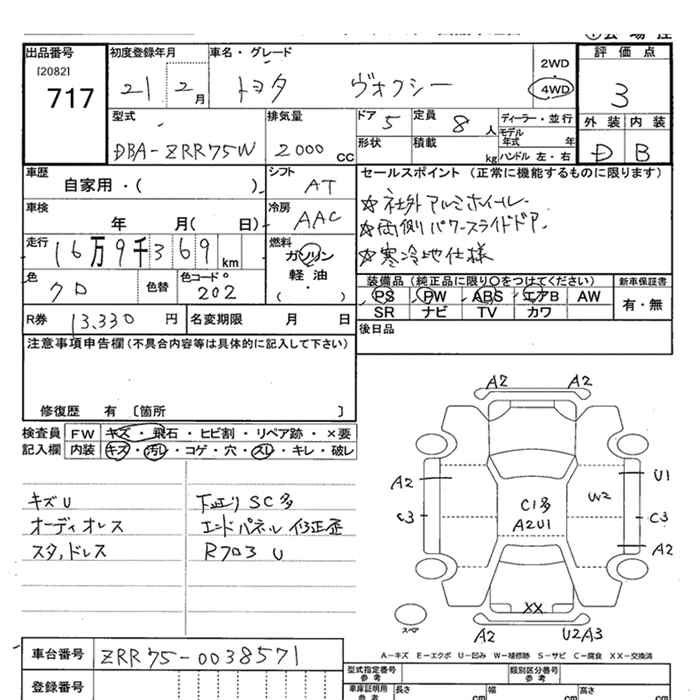 出品番号 初度登録年月 車名・グレード 評価点
[2082]
717 21 2月 トヨタ ヴォクシー 2WD 4WD 3
型式 排気量 ドア 5 定員 8人 ディーラー・並行 外装 内装
DBA-ZRR75W 2000 CC 形状 積載 kg モデル年式 年 ハンドル 左・右 D B
車歴 シフト セールスポイント (正常に機能するものに限ります)
自家用・( ) AT ☆社外アルミホイール
車検 冷房 ☆両側パワースライドドア
年 月( 日) AAC ☆寒冷地仕様
走行 燃料
16万9千369km ガソリン
軽油
( ・ )
色 クロ 色替 色コード 202
装備品 (純正品に限り○をつけてください) 新車保証書
PS PW ABS エアB AW 有・無
SR ナビ TV カワ
R券 13,330 円 名変期限 月 日 後日品
注意事項申告欄 (不具合内容等は具体的に記入して下さい)
修復歴 有 [箇所 ]
検査員 FW キズ・飛石・ヒビ割・リペア跡・×要
記入欄 内装 キズ・汚レ・コゲ・穴・スレ・キレ・破レ
キズU 下廻りSC多
オーディオレス エンドパネル修正歪
スタッドレス Rフロア U
A2 A2
A2 U1
W2
C3 C1多 C3
A2U1
A2
XX
スペア A2 U2A3
A-キズ E-エクボ U-凹み W-補修跡 S-サビ C-腐食 XX-交換済
車台番号 ZRR75-0038571
型式指定番号 参考 類別区分番号 参考
登録番号 車庫証明用 参考 長さ cm 幅 cm 高さ cm